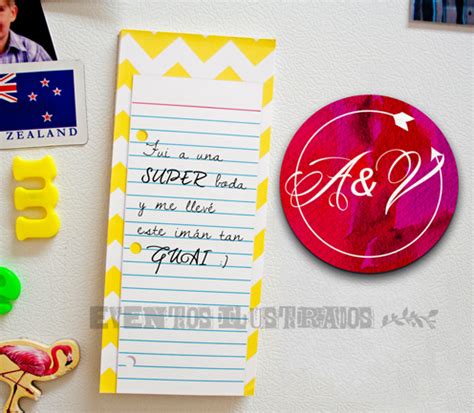 ZEALAND
m
Fui a una
SUPER boda
y me llevé
este imán tan
GUAI :)
A&V
EVENTOS ILUSTRADOS